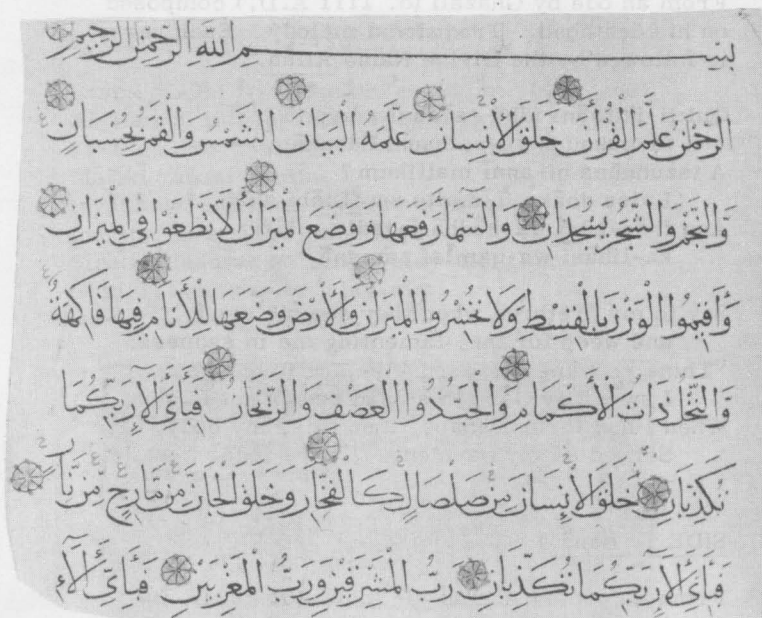 بسم الله الرحمن الرحيم
الرَّحْمٰنُ عَلَّمَ الْقُرْأَنَ خَلَقَ الْإِنسَانَ عَلَّمَهُ الْبَيَانَ الشَّمْسُ وَالْقَمَرُ بِحُسْبَانٍ
وَالنَّجْمُ وَالشَّجَرُ يَسْجُدَانِ وَالسَّمَاءَ رَفَعَهَا وَوَضَعَ الْمِيزَانَ أَلَّا تَطْغَوْا فِي الْمِيزَانِ
وَأَقِيمُوا الْوَزْنَ بِالْقِسْطِ وَلَا تُخْسِرُوا الْمِيزَانَ وَالْأَرْضَ وَضَعَهَا لِلْأَنَامِ فِيهَا فَاكِهَةٌ
وَالنَّخْلُ ذَاتُ الْأَكْمَامِ وَالْحَبُّ ذُوا الْعَصْفِ وَالرَّيْحَانُ فَبِأَيِّ آلَآءِ رَبِّكُمَا
تُكَذِّبَانِ خَلَقَ الْإِنسَانَ مِن صَلْصَالٍ كَالْفَخَّارِ وَخَلَقَ الْجَانَّ مِن مَّارِجٍ مِّن نَّارٍ
فَبِأَيِّ آلَآءِ رَبِّكُمَا تُكَذِّبَانِ رَبُّ الْمَشْرِقَيْنِ وَرَبُّ الْمَغْرِبَيْنِ فَبِأَيِّ آلَآءِ